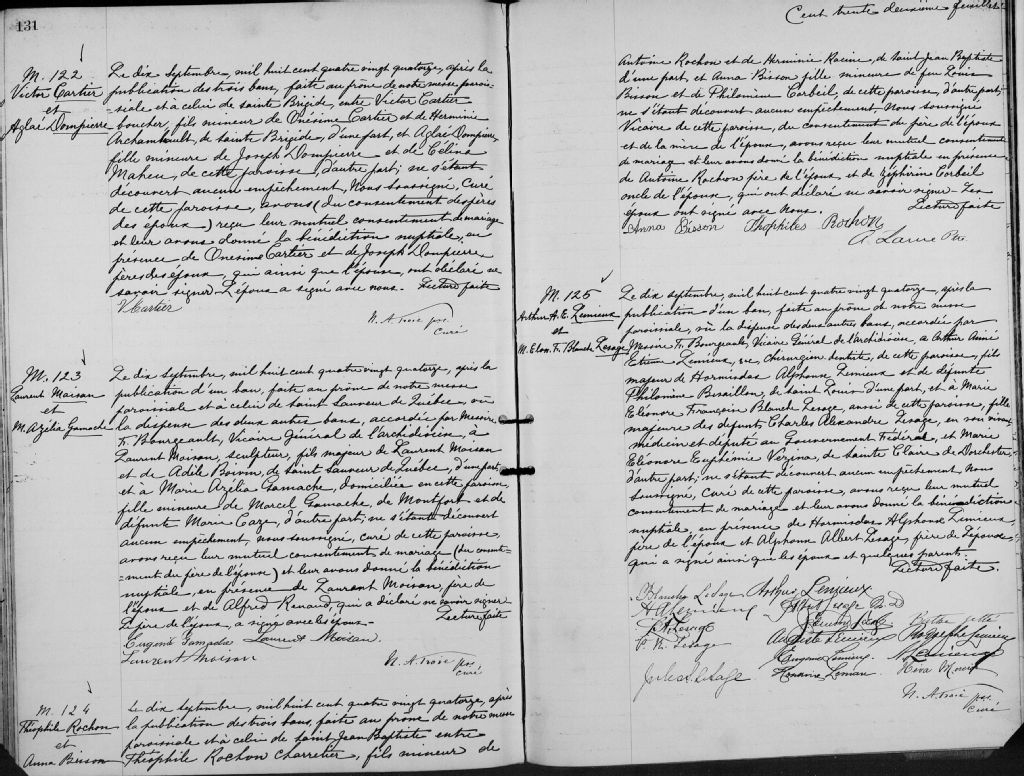 131
M. 122
Victor Cartier
et
Aglaé Dompierre
Le dix Septembre, mil huit cent quatre vingt quatorze, après la
publication des trois bans, faite au prône de notre messe parois-
siale et à celui de sainte Brigide, entre Victor Cartier
boucher, fils mineur de Onésime Cartier et de Herminie
Archambault, de sainte Brigide, d'une part, et Aglaé Dompierre,
fille mineure de Joseph Dompierre et de Célina
Maheu, de cette paroisse, d'autre part; ne s'étant
découvert aucun empêchement, Nous soussigné, Curé
de cette paroisse, avons (du consentement des pères
des époux) reçu leur mutuel consentement de mariage
et leur avons donné la bénédiction nuptiale, en
présence de Onésime Cartier et de Joseph Dompierre,
pères des époux, qui ainsi que l'épouse, ont déclaré ne
savoir signer. L'époux a signé avec nous. Lecture faite
V Cartier
N. A. Troie ptre
Curé
M. 123
Laurent Moisan
et
M. Azélia Gamache
Le dix septembre, mil huit cent quatre vingt quatorze, après la
publication d'un ban, faite au prône de notre messe
paroissiale et à celui de saint Sauveur de Québec, vu
la dispense des deux autres bans, accordée par Messire
F. Bourgeault, Vicaire Général de l'archidiocèse, à
Laurent Moisan, sculpteur, fils majeur de Laurent Moisan
et de Adèle Boivin, de Saint Sauveur de Québec, d'une part,
et à Marie Azélia Gamache, domiciliée en cette paroisse,
fille mineure de Marcel Gamache, de Montfort et de
défunte Marie Caze, d'autre part; ne s'étant découvert
aucun empêchement, nous soussigné, curé de cette paroisse,
avons reçu leur mutuel consentement de mariage (du consente-
-ment du père de l'épouse) et leur avons donné la bénédiction
nuptiale, en présence de Laurent Moisan, père de
l'époux et de Alfred Renaud, qui a déclaré ne savoir signer
Le père de l'époux, a signé avec les époux. Lecture faite
Laurent Moisan
Laurent Moisan
N. A. Troie ptre
curé
M. 124
Théophile Rochon
et
Anna Bisson
Le dix Septembre, mil huit cent quatre vingt quatorze, après
la publication des trois bans, faite au prône de notre messe
paroissiale et à celui de saint Jean Baptiste entre
Théophile Rochon charretier, fils mineur de
Cent trente deuxième feuillet
Antoine Rochon et de Herminie Racine, de saint Jean Baptiste
d'une part, et Anna Bisson fille mineure de feu Louis
Bisson et de Philomène Corbeil, de cette paroisse, d'autre part;
ne s'étant découvert aucun empêchement Nous soussigné
Vicaire de cette paroisse, du consentement du père de l'époux
et de la mère de l'épouse, avons reçu leur mutuel consentement
de mariage et leur avons donné la bénédiction nuptiale en présence
de Antoine Rochon père de l'époux, et de Zéphirin Corbeil
oncle de l'épouse, qui ont déclaré ne savoir signer. Les
époux ont signé avec Nous. Lecture faite
Anna Bisson Théophiles Rochon
A. Larue Ptre
M. 125
Arthur A. E. Lemieux
et
M. Elon. Fr. Blanch Lesage
Le dix septembre, mil huit cent quatre vingt quatorze, après la
publication d'un ban, faite au prône de notre messe
paroissiale, vu la dispense des deux autres bans, accordée par
Messire F. Bourgeault, Vicaire Général de l'archidiocèse, à Arthur Aimé
Etienne Lemieux, chirurgien dentiste, de cette paroisse, fils
majeur de Hormisdas Alphonse Lemieux et de défunte
Philomène Bisaillon, de saint Louis d'une part, et à Marie
Eléonore François Blanche Lesage, aussi de cette paroisse, fille
majeure des défunts Charles Alexandre Lesage, en son vivant
médecin et député au Gouvernement Fédéral, et Marie
Eléonore Euphémie Vezina, de sainte Claire de Dorchester,
d'autre part; ne s'étant découvert aucun empêchement, Nous
soussigné, Curé de cette paroisse, avons reçu leur mutuel
consentement de mariage et leur avons donné la bénédiction
nuptiale, en présence de Hormisdas Alphonse Lemieux,
père de l'époux et Alphonse Albert Lesage, frère de l'épouse,
qui a signé ainsi que les époux et quelques parents.
Lecture faite.
Blanche LeSage Arthur Lemieux
H A Lemieux Albert Lesage M. D
Lesage
P. N. Lesage Auguste Lemieux Joseph Lemieux
Eugénie Lemieux. Lemieux
Jules A. Lesage
N. A. Troie ptre
Curé